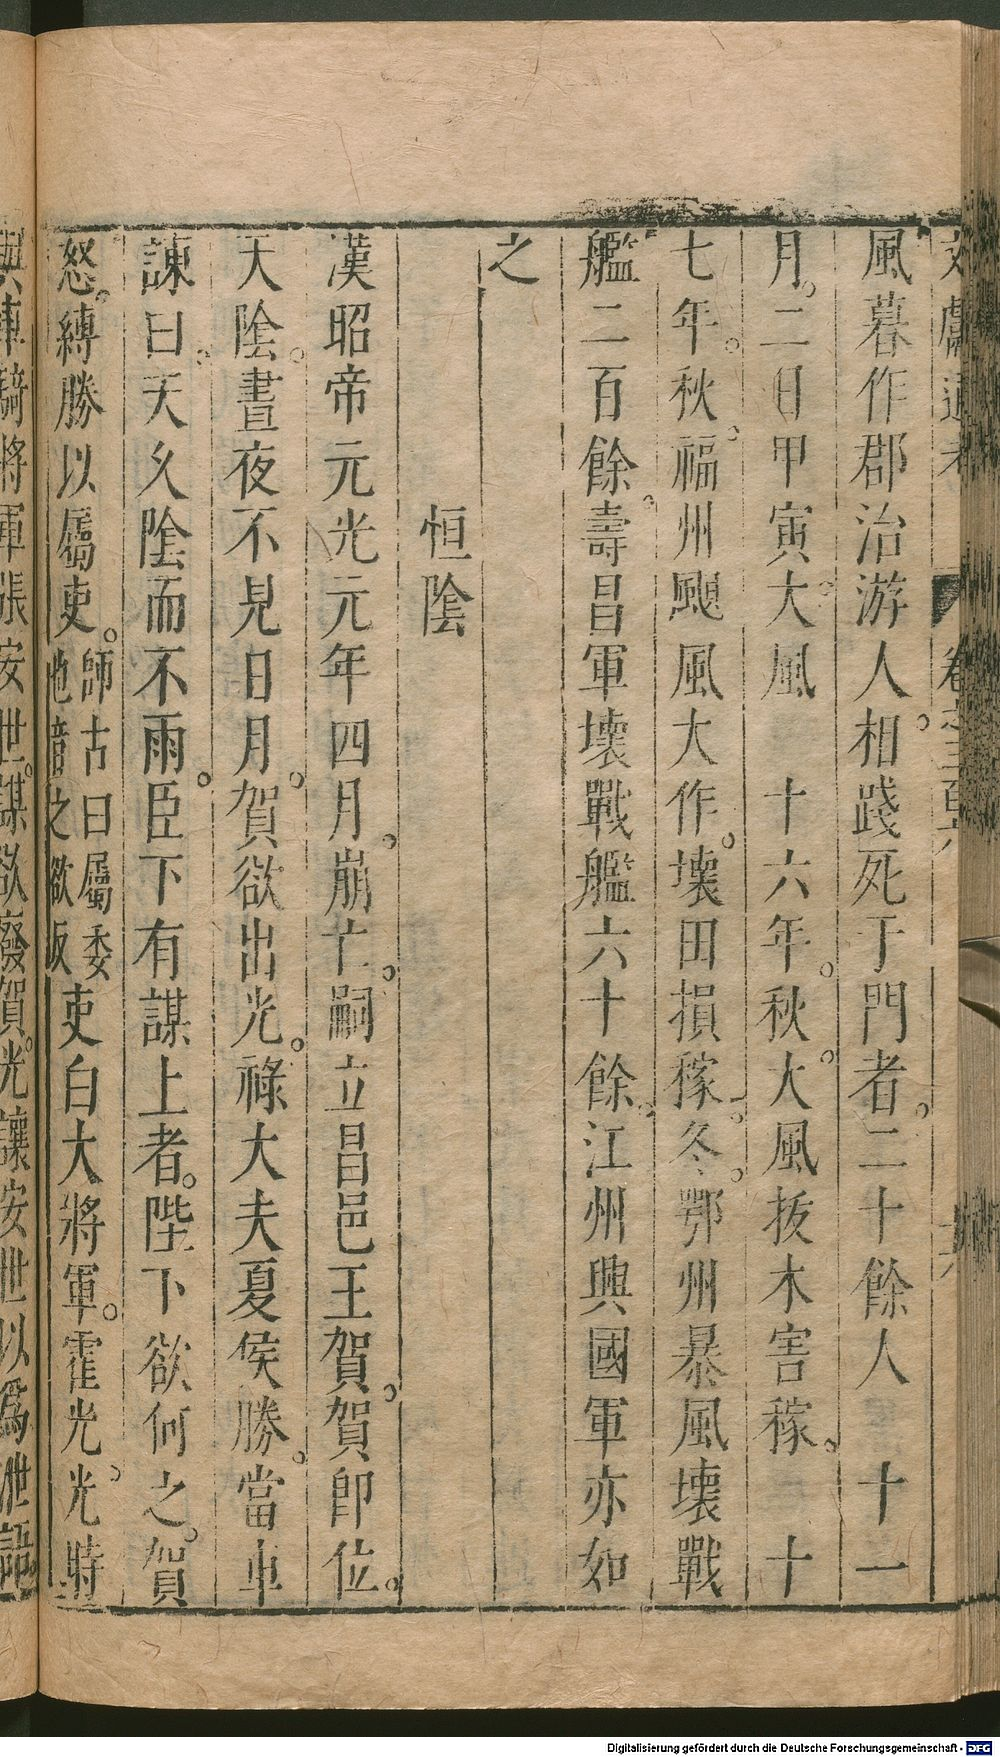 文獻通考 卷之三百六
風暮作郡治游人相踐死于門者。二十餘人 十一
月。二日甲寅大風 十六年。秋。大風拔木害稼。 十
七年。秋。福州颶風大作。壞田損稼。冬。鄂州暴風壞戰
艦二百餘。壽昌軍壞戰艦六十餘。江州興國軍亦如
之
恒陰
漢昭帝元光元年四月。崩亡。嗣立昌邑王賀。賀卽位。
天陰。晝夜不見日月。賀欲出光。祿大夫夏侯勝。當車
諫曰。天久陰而不雨。臣下有謀上者。陛下欲何之。賀
怒。縛勝以屬吏。師古曰屬委 之欲 吏白大將軍。霍光。光時
與車騎將軍張安世。謀欲廢賀。光讓安世以爲泄語
Digitalisierung gefördert durch die Deutsche Forschungsgemeinschaft - DFG